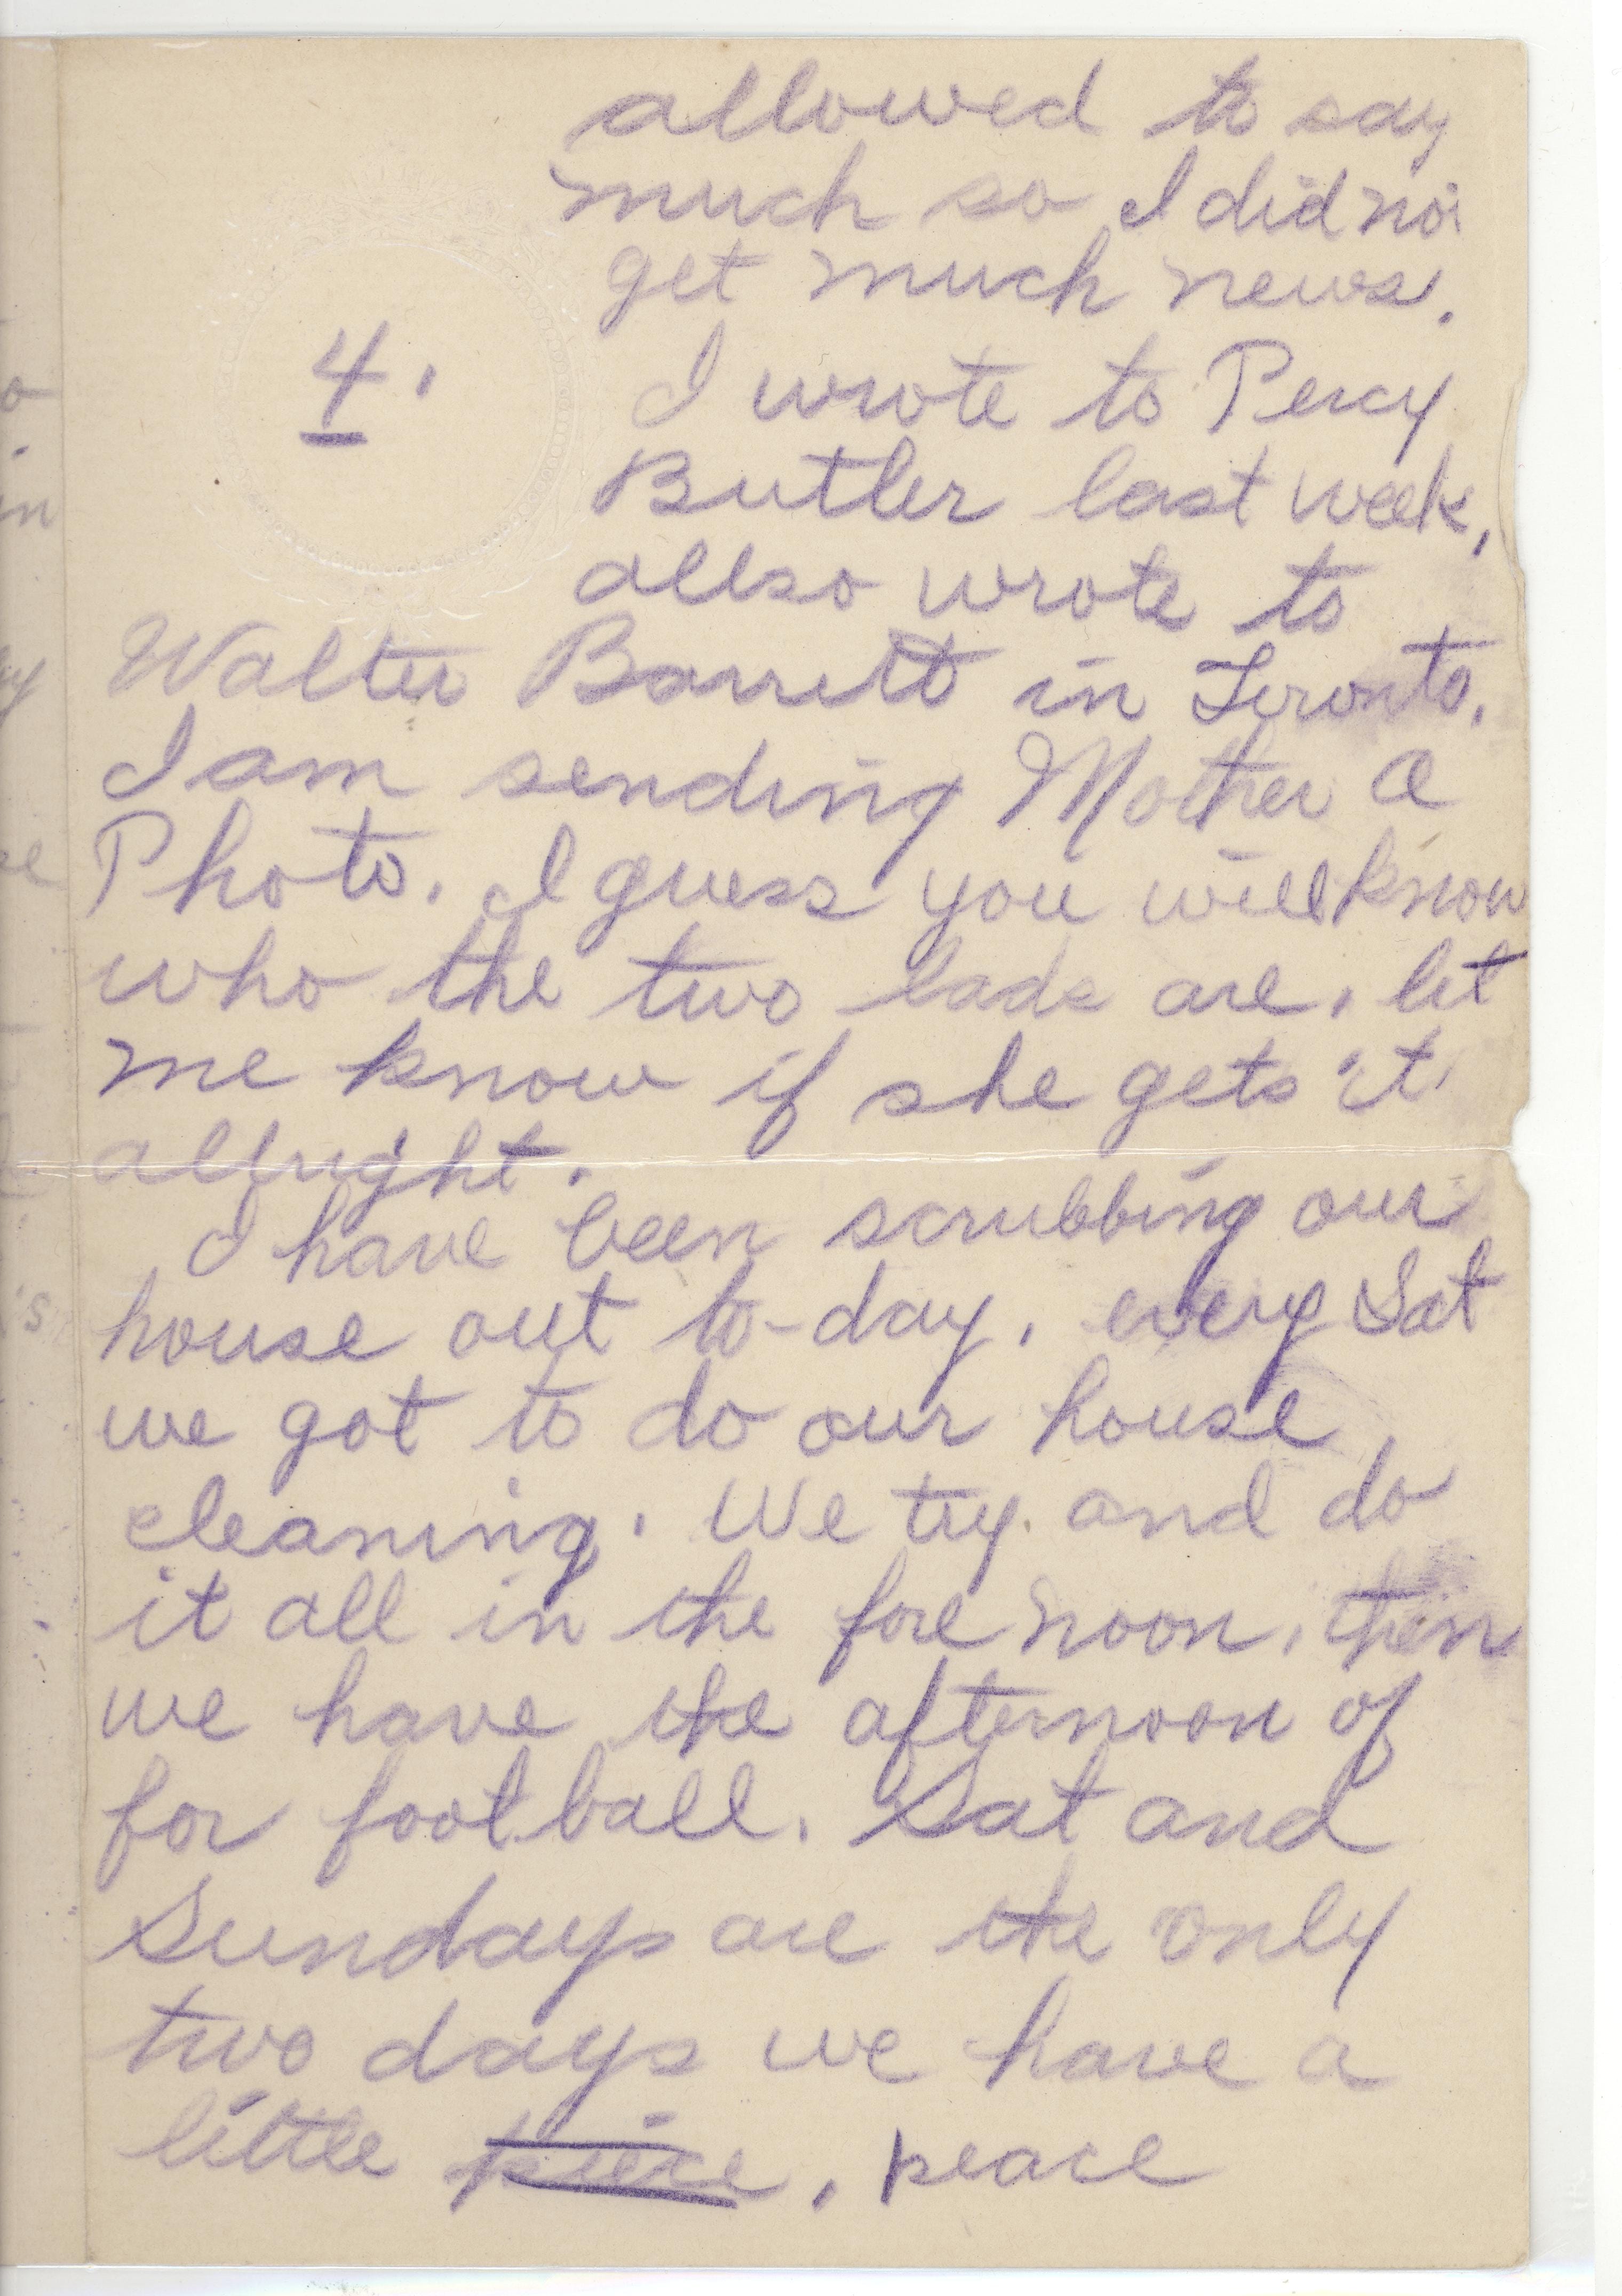 allowed to say
much so I did not
get much news.
4.
I wrote to Percy
Butler last week,
allso wrote to
Walter Barrett in Toronto.
I am sending Mother a
Photo. I guess you will know
who the two lads are, let
me know if she gets it
allright.
I have been scrubbing our
house out to-day, every Sat
we got to do our house
cleaning. We try and do
it all in the fore noon, then
we have the afternoon of
for foot ball. Sat and
Sundays are the only
two days we have a
little piece, peace